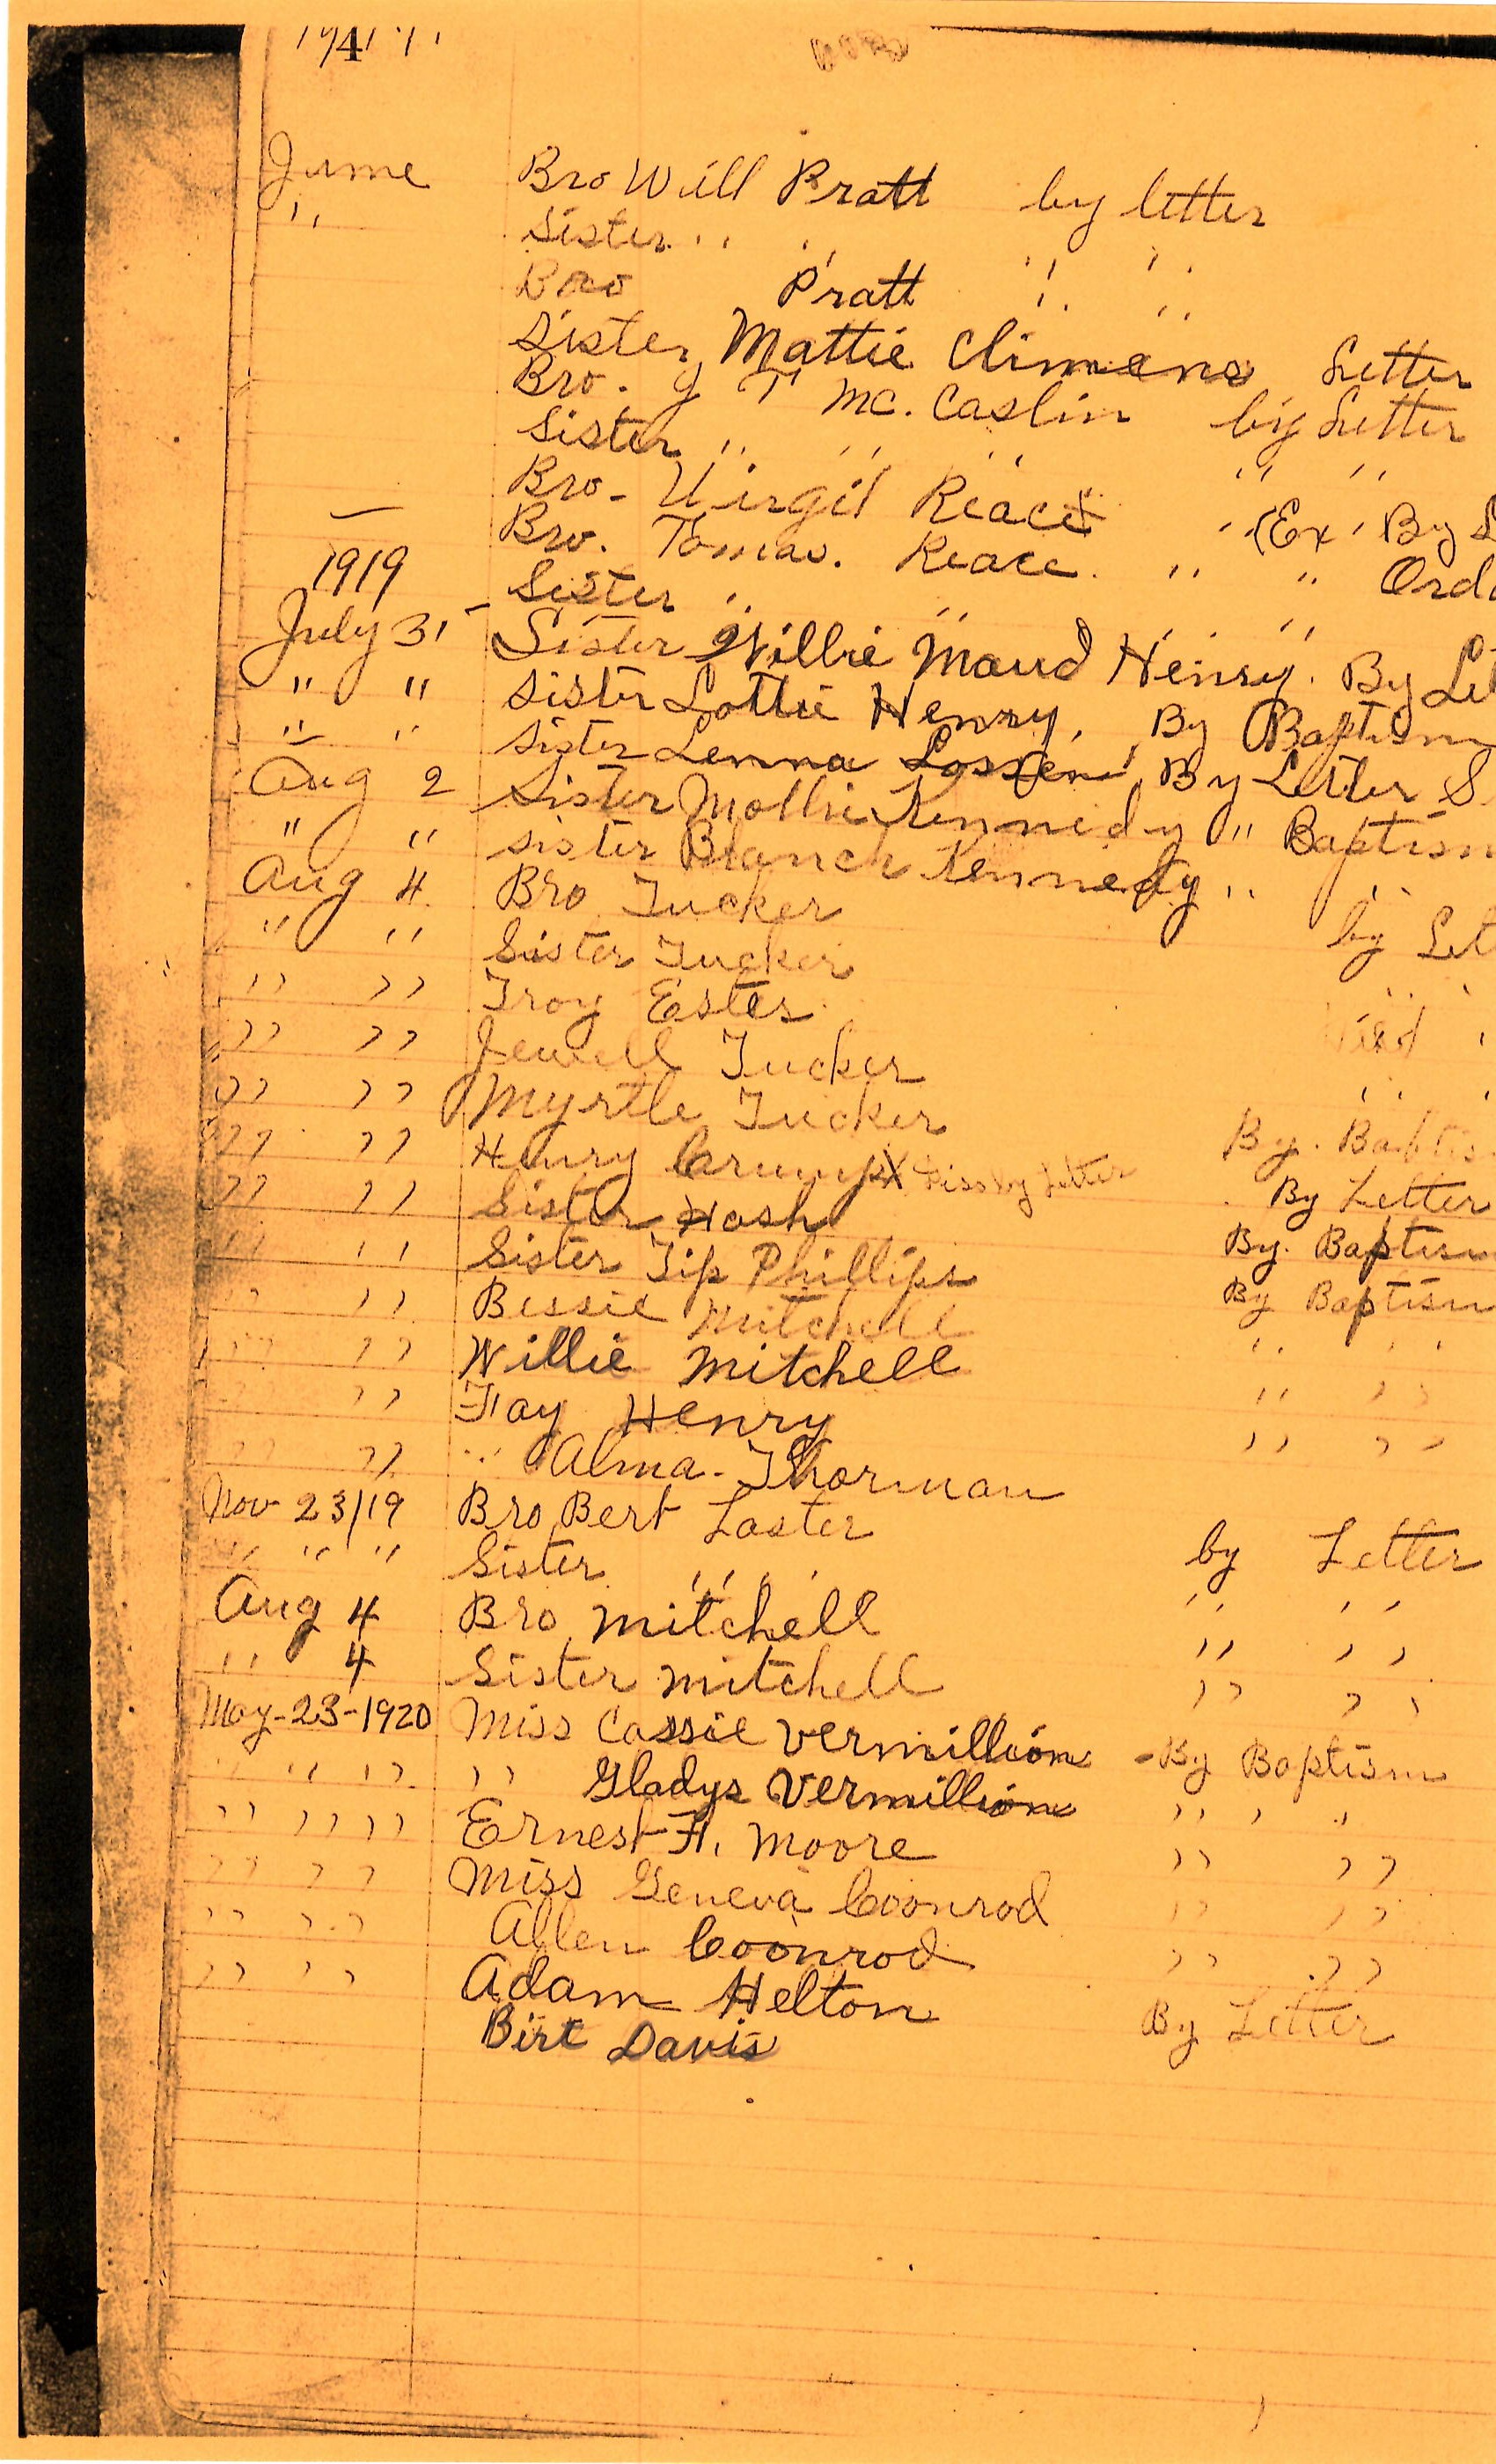 4
June Bro Will Pratt by letter
" Sister " " " "
Bro Pratt " "
Sister Mattie Climens Letter
Bro. J T Mc. Caslin by Letter
Sister " " " " "
Bro- Virgil Reace " (Ex By L
1919 Bro. Tomas. Reace. " " Orda
Sister " " " "
July 31 - Sister Willie Maud Henry. By Let
" " Sister Lottie Henry, By Baptism
" " Sister Lenna By Letter S
Aug 2 Sister Mollie Kennedy " Baptism
" " Sister Blanch Kennedy " "
Aug 4 Bro Tucker by Let
" " Sister Tucker " "
" " Troy Estes
" " Jewell Tucker " "
" " Myrtle Tucker By. Baptis
" " Henry Crump X Diss by Letter By Letter
" " Sister Hash By. Baptism
" " Sister Tip Phillips By Baptism
" " Bessie Mitchell " "
" " Willie Mitchell " "
" " Fay Henry " "
" " " Alma - Thorman
Nov 23/19 Bro Bert Laster by Letter
" " " Sister " " " "
Aug 4 Bro, Mitchell " "
" 4 Sister Mitchell " "
May-23-1920 Miss Cassie Vermillion - By Baptism
" " " " Gladys Vermillion " " "
" " " " Ernest F. Moore " "
" " " Miss Geneva Coonrod " "
" " " Allen Coonrod " "
" " " Adam Helton By Letter
Birt Davis